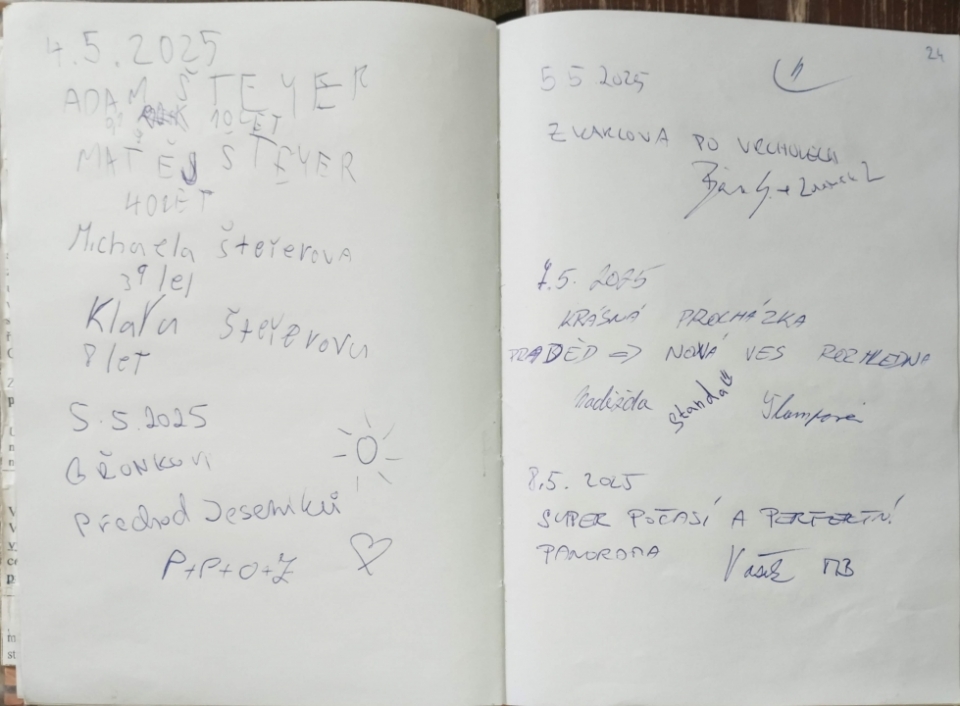 4.5.2025
ADAM ŠTEYER
10 LET
MATĚJ ŠTEYER
40 LET
Michaela Šteyerova
39 let
Klara Šteyerova
8 let
5.5.2025
Přechod Jeseníků
P+P+O+Z
24
5 5 2025
Z KARLOVA PO VRCHOLECH
7.5. 2025
KRÁSNÁ PROCHÁZKA
PRADĚD => NOVÁ VES ROZHLEDNA
Naděžda Standa
8.5. 2025
SUPER POČASÍ A PERFEKTNÍ
PANOROMA
Vašek MB